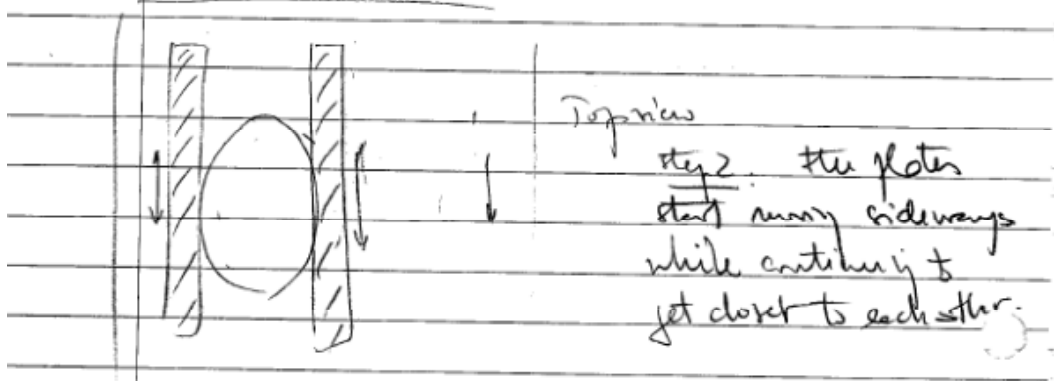 Top view
step 2. the plates
start running sideways
while continuing to
get closer to each other.